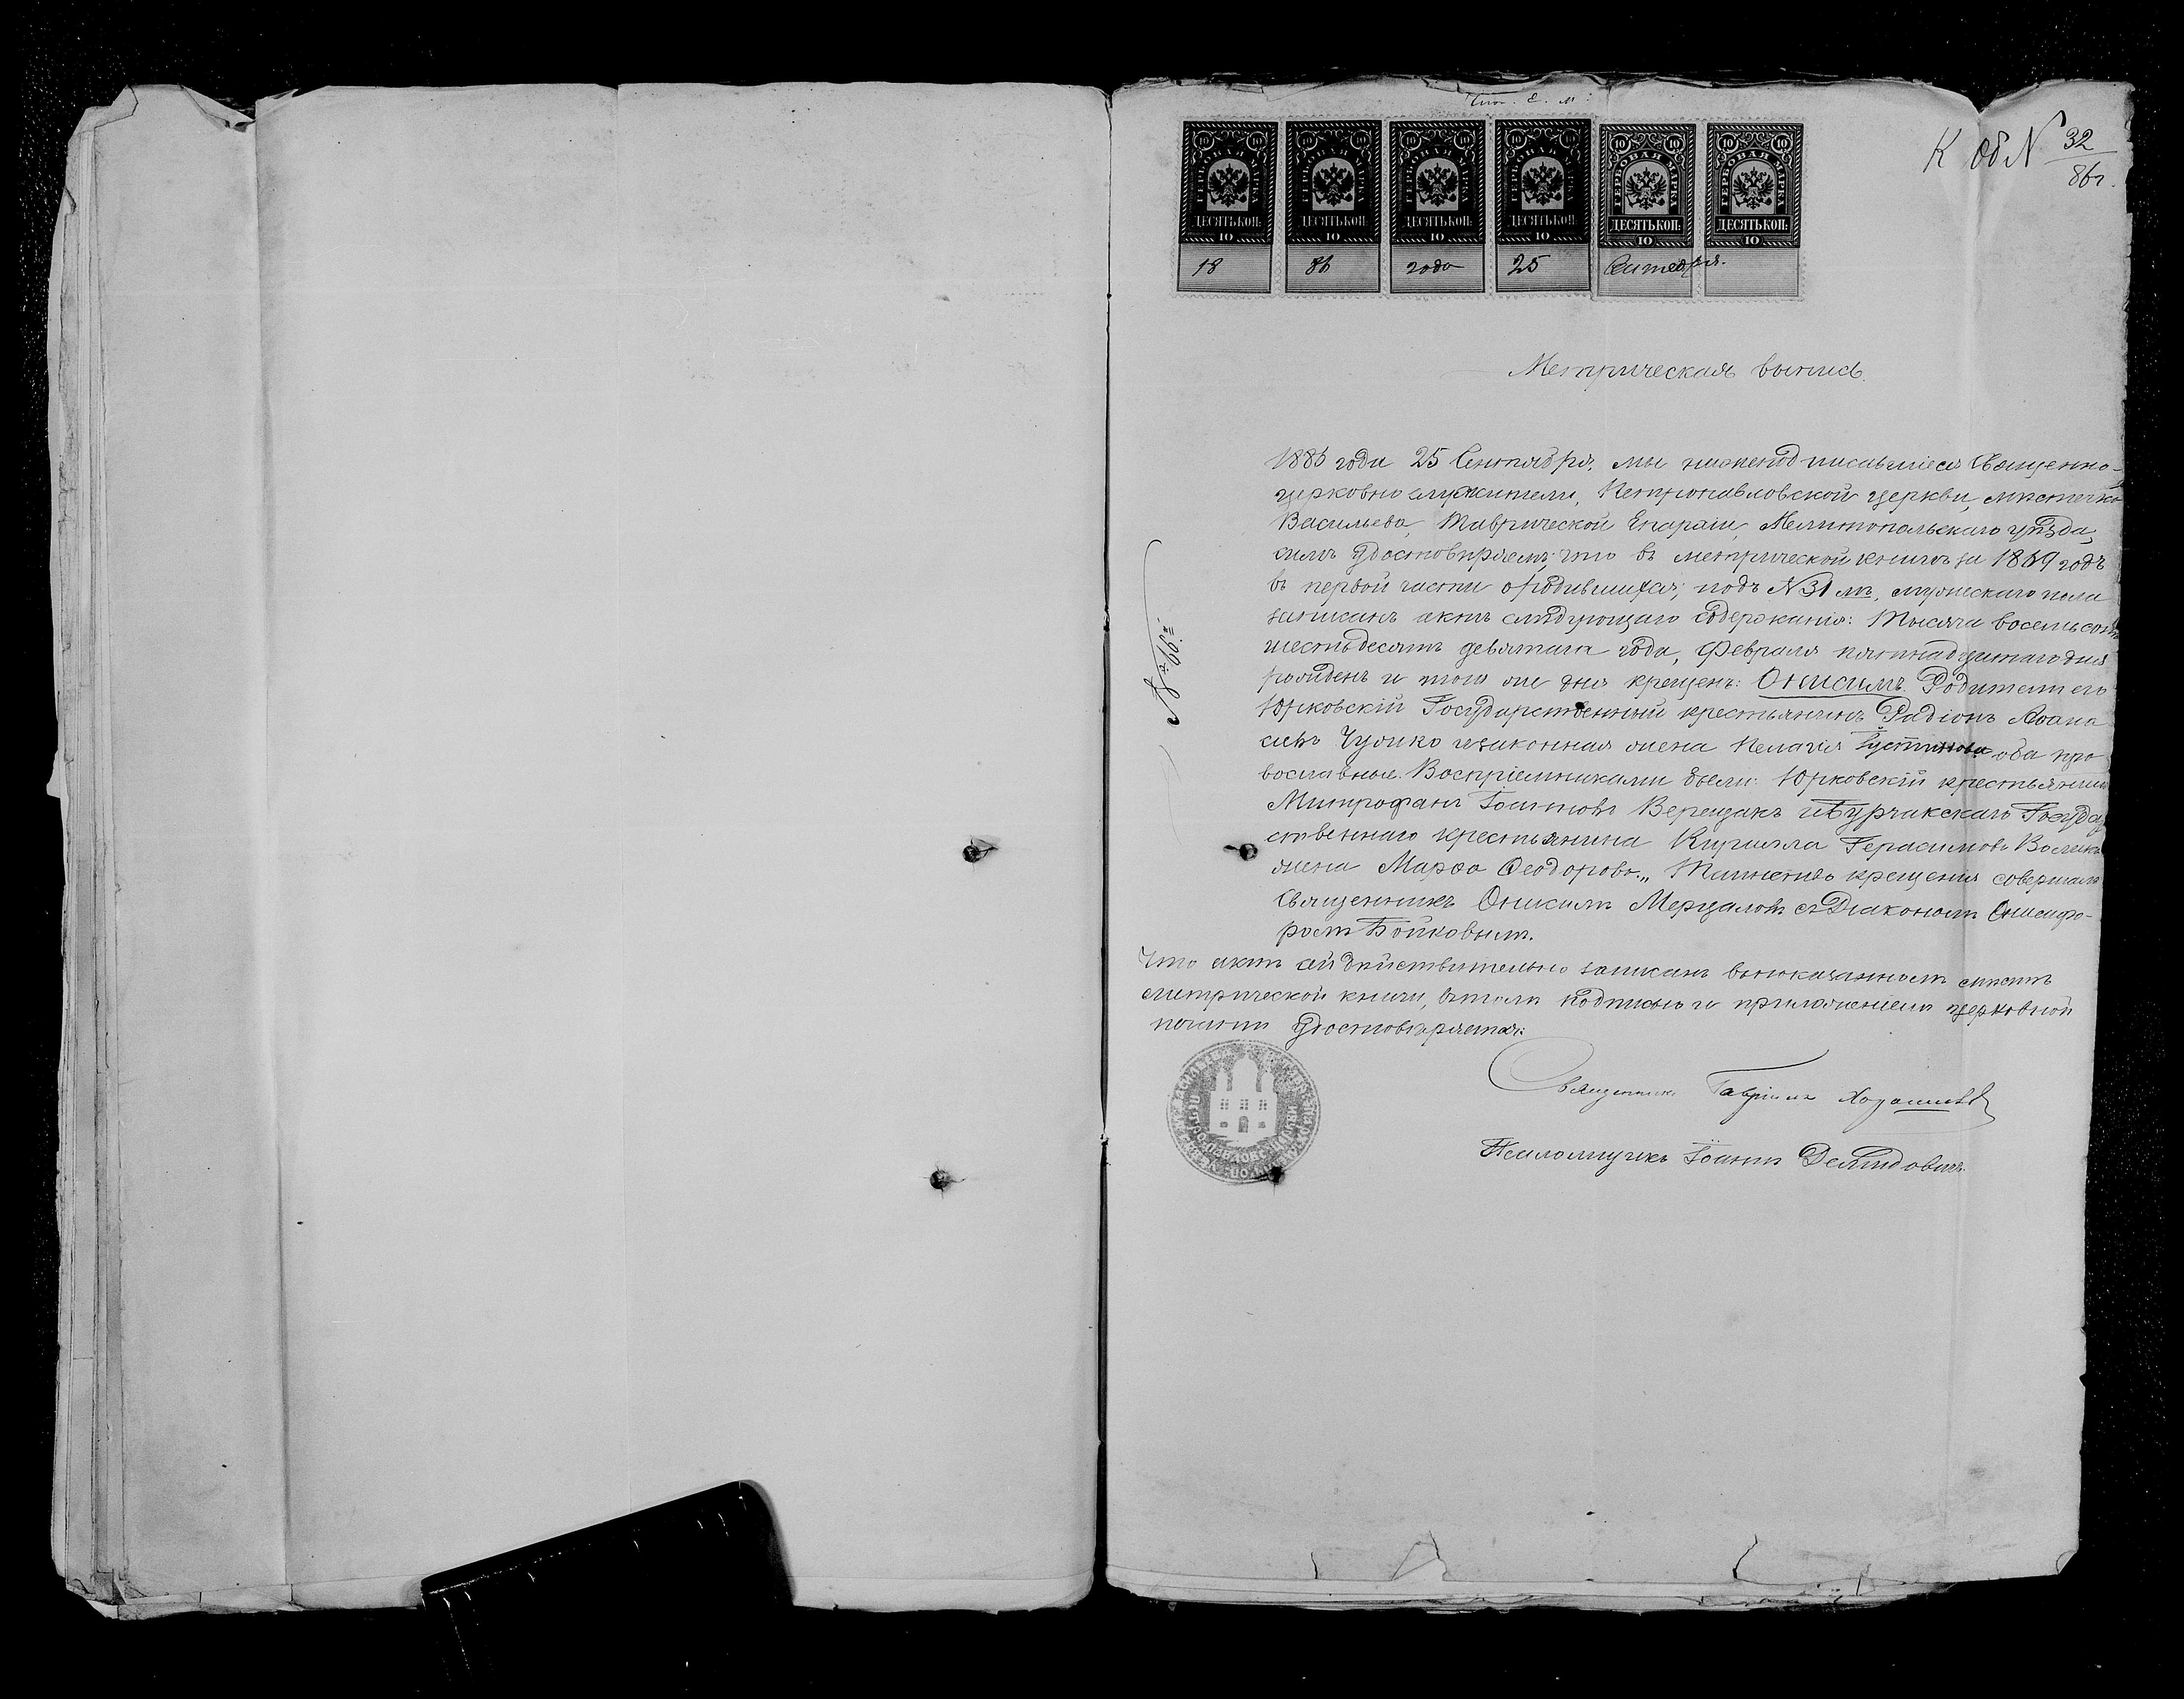 К об № 32/86 г.
10 10 10 10 10 10 10 10 10 10 10 10
ГЕРБОВАЯ МАРКА ГЕРБОВАЯ МАРКА ГЕРБОВАЯ МАРКА ГЕРБОВАЯ МАРКА ГЕРБОВАЯ МАРКА ГЕРБОВАЯ МАРКА
ДЕСЯТЬ КОП: ДЕСЯТЬ КОП: ДЕСЯТЬ КОП: ДЕСЯТЬ КОП: ДЕСЯТЬ КОП: ДЕСЯТЬ КОП:
10 10 10 10 10 10
18 86 года 25 Сентября.
Метрическая выпись.
1886 года 25 Сентября, мы нижеподписавшіеся Священно-
церковно служители, Петропавловской церкви, мѣстечка
Васильева, Таврической Епархіи, Мелитопольскаго уѣзда,
симъ удостовѣряемъ, что въ метрической книгѣ за 1869 годъ
въ первой части о родившихся, подъ № 31 мъ, мужескаго пола
записанъ актъ слѣдующаго содержанія: Тысяча восемьсотъ
шестьдесятъ девятаго года, Февраля пятнадцатаго дня
рожденъ и того же дня крещенъ: Онисимъ. Родители его
Юрковскій Государственный крестьянинъ Радіонъ Аѳана
сіевъ Чуйко и законная жена Пелагія Іустинова оба пра
вославные. Воспріемниками были: Юрковскій крестьянинъ
Митрофанъ Іоанновъ Верещакъ и Бурчакскаго Государ
ственнаго крестьянина Кирилла Герасимова
жена Марѳа Ѳеодорова„ Таинство крещенія совершалъ
Священникъ Онисимъ Мерцаловъ съ Діакономъ Онисифо-
ромъ Бойковымъ.
Что актъ сей дѣйствительно записанъ въ показанномъ мѣстѣ
метрической книги, въ томъ подписью и приложеніемъ церковной
печати удостовѣряется:
Священникъ Гавріилъ
Псаломщикъ Іоаннъ Демидовичъ